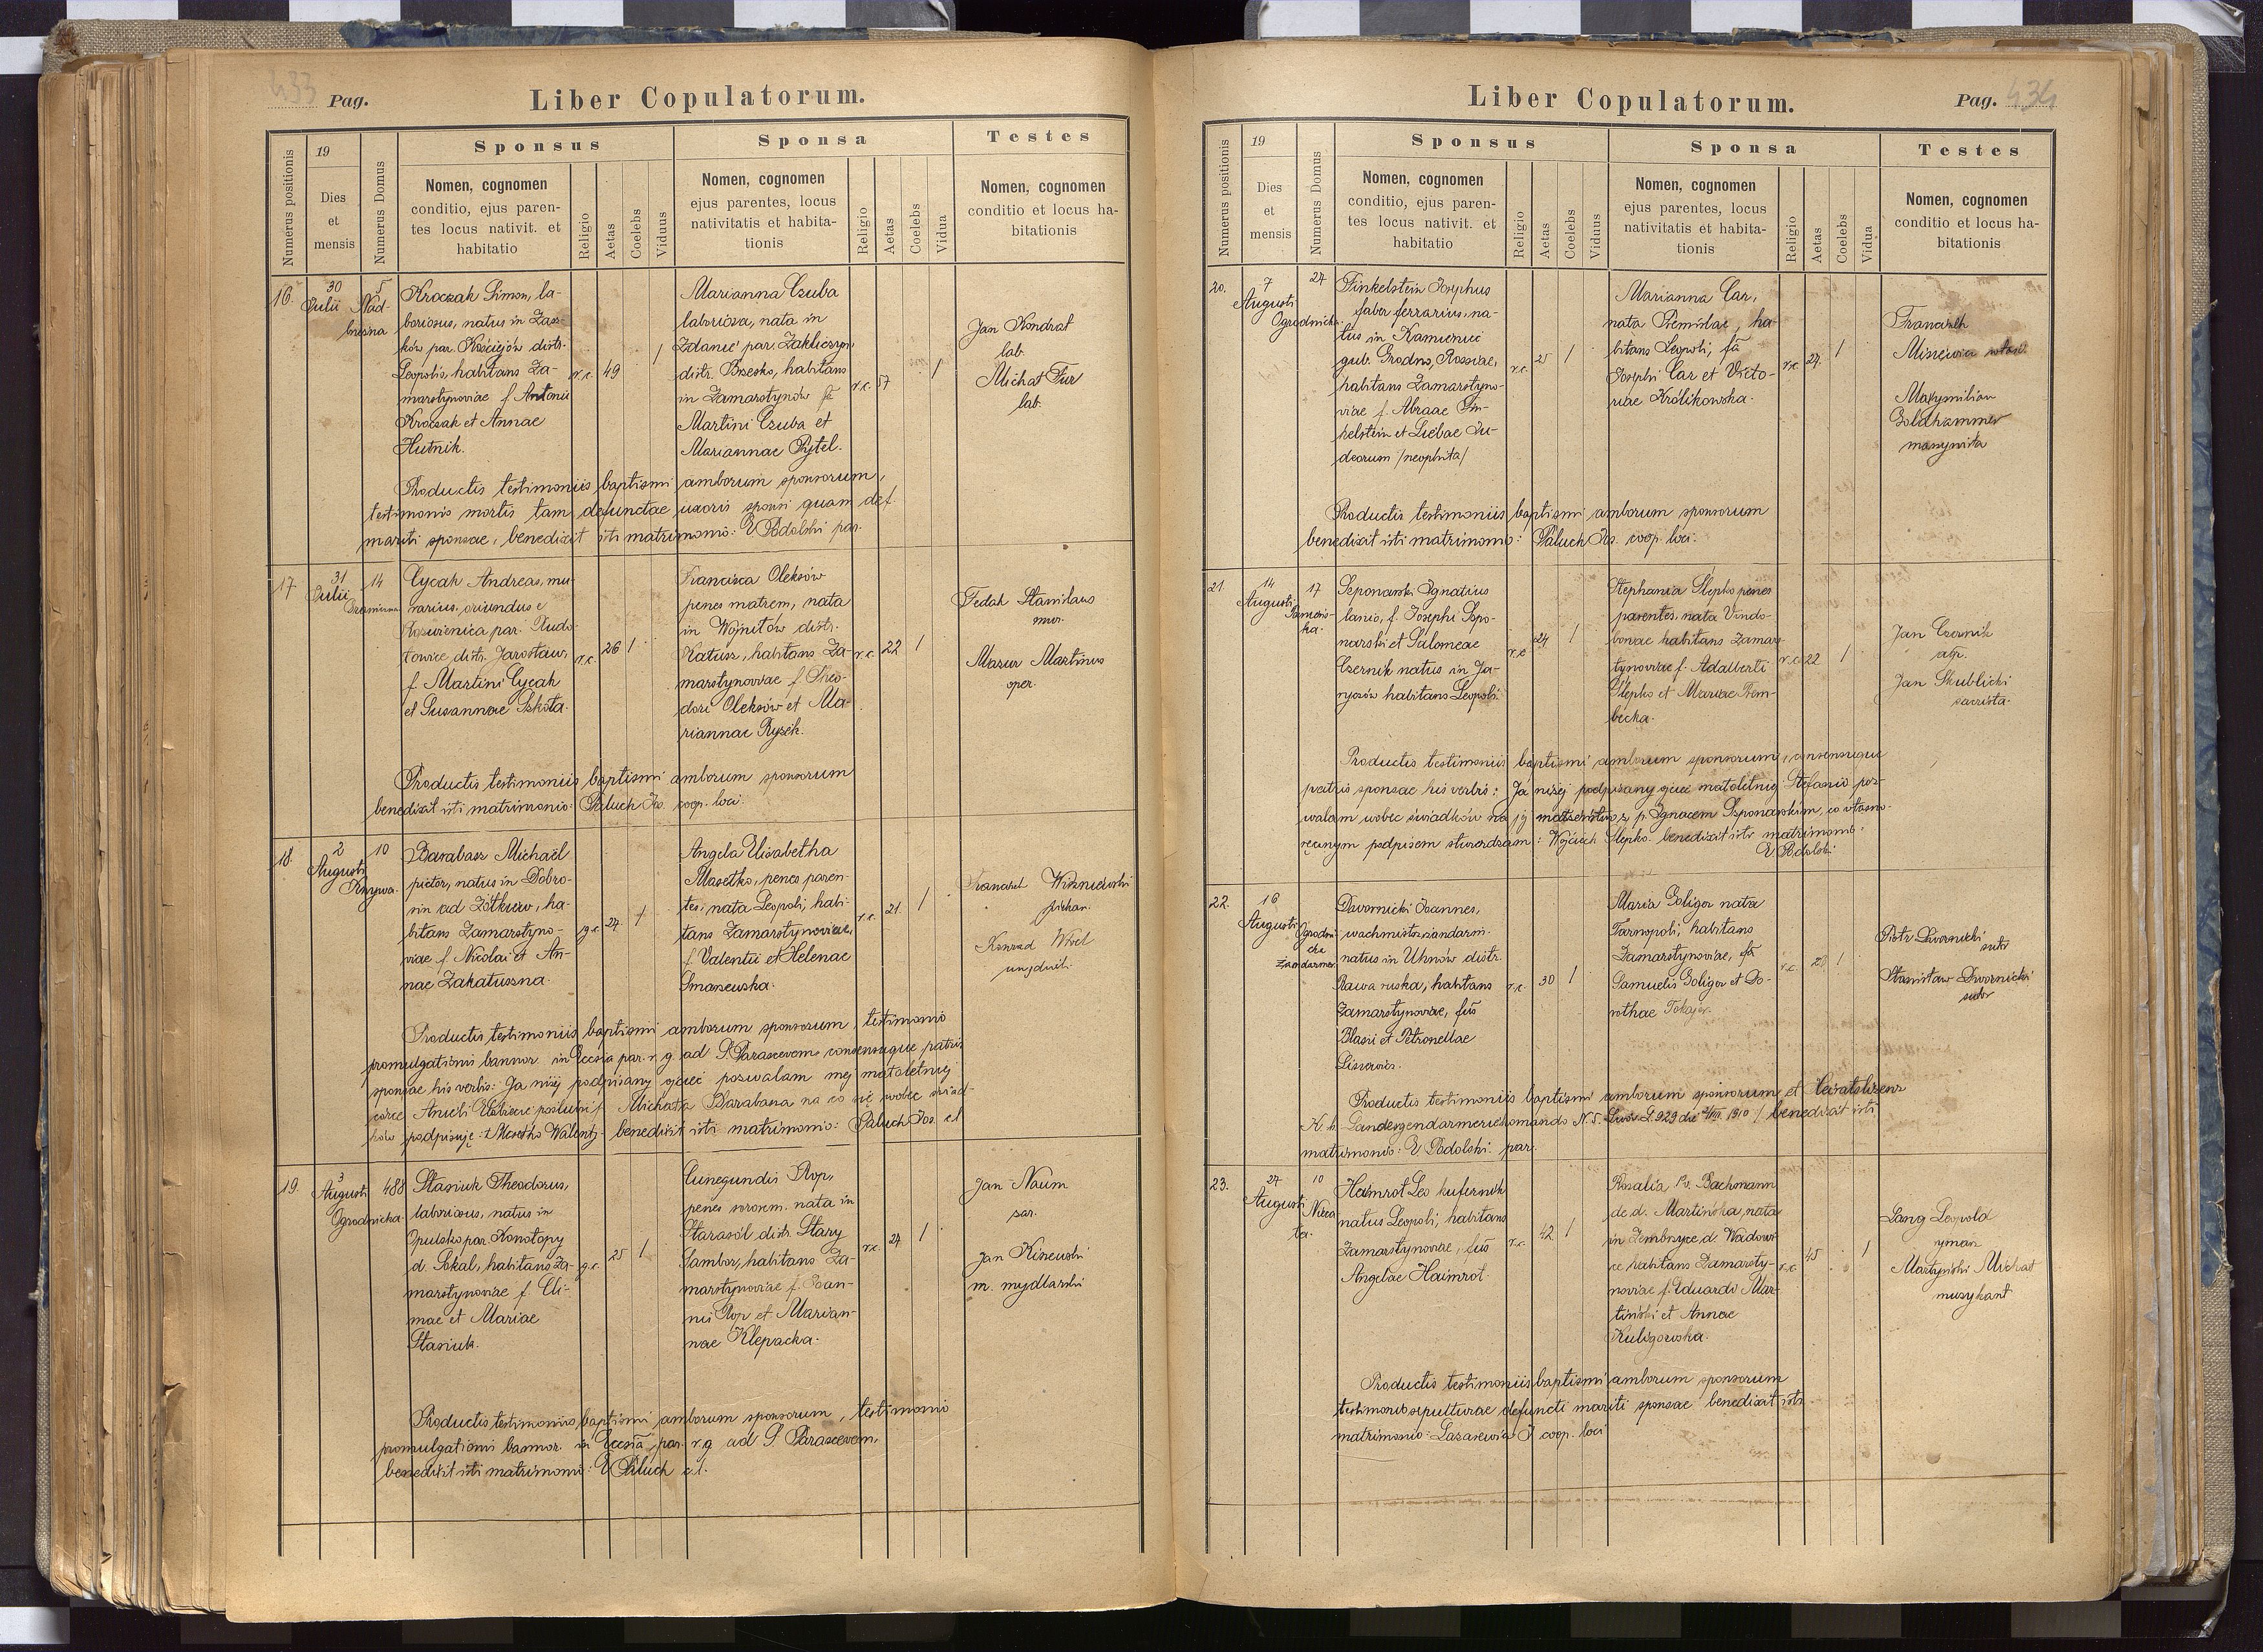 433 Pag.
Liber Copulatorum.
Numerus positionis
19
Dies
et
mensis
Numerus Domus
Sponsus
Nomen, cognomen
conditio, ejus paren-
tes locus nativit. et
habitatio
Religio
Aetas
Coelebs
Viduus
Sponsa
Nomen, cognomen
ejus parentes, locus
nativitatis et habita-
tionis
Religio
Aetas
Coelebs
Vidua
Testes
Nomen, cognomen
conditio et locus ha-
bitationis
16.
30
Julii
5
Nad-
brzeżna
Kroczak Simon, la-
boriosus, natus in Zasz-
ków par. Kościejów distr.
Leopolis, habitans Za-
marstynoviae f. Antonii
Kroczak et Annae
Hutnik.
r.c. 49 1
Marianna Czuba
laboriosa, nata in
Zdanie par. Zakliczyn,
distr. Brzesko, habitans
in Zamarstynów fa
Martini Czuba et
Mariannae Pytel.
r.c. 57 1
Jan Kondrat
lab.
Michał Fur
lab.
Productis testimoniis baptismi amborum sponsorum,
testimonis mortis tam defunctae uxoris sponsi quam def.
mariti sponsae, benedixit isti matrimonio: E Podolski par.
17.
31
Julii
14
Cycak Andreas, mu-
rarius, oriundus e
par. Rudo-
łowice, distr. Jarosław,
f Martini Cycak
et Susannae Szkoła.
r.c. 26 1
Francisca Oleksów
penes matrem, nata
in Wojniłów distr.
Kałusz, habitans Za-
marstynoviae f. Theo-
dori Oleksów et Ma-
riannae Rysik.
r.c. 22 1
Fedak Stanislaus
mur.
Mazur Martinus
oper.
Productis testimoniis baptismi amborum sponsorum
benedixit isti matrimonio: Paluch Jos. coop. loci.
18.
2
Augusti
10
Krzywa.
Barabasz Michaël
pictor, natus in Dobro-
sin ad Żółkiew, ha-
bitans Zamarstyno-
viae f. Nicolai et An-
nae Zakałuszna.
g.c. 24 1
Angela Elisabetha
Masełko, penes paren-
tes, nata Leopoli, habi-
tans Zamarstynoviae,
f. Valentii et Helenae
Smaszewska.
r.c. 21. 1
Franciszek Wiśniewski
piekar.
Konrad Wróel
urzędnik
Productis testimoniis baptismi amborum sponsorum, testimonio
promulgationis bannor. in Eccsia par. r. g. ad S. Parascevem, consensuque patris
sponsae his verbis: Ja niżej podpisany ojciec pozwalam mej małoletniej
córce Anieli Elżbiecie poślubić Michała Barabasza na co się wobec świad-
ków podpisuję: Masełko Walenty. benedixit isti matrimonio: Paluch Jos. c.l
19.
3
Augusti
488
Ogrodnicka
Stasiuk Theodorus,
laboriosus, natus in
Opulsko par. Konotopy
d. Sokal, habitans Za-
marstynoviae f. Cli-
mae et Mariae
Stasiuk.
g.c. 25 1
Cunegundis Rop,
penes sororem, nata in
Starasól distr. Stary
Sambor, habitans Za-
marstynoviae f. Joan-
nis Rop et Marian-
nae Klepacka.
r.c. 24 1
Jan Naum
zar.
Jan Kiszewski
m. mydlarski
Productis testimoniis baptismi amborum sponsorum, testimonio
promulgationis bannor. in Eccsia par. r.g. ad S. Parascevem,
benedixit isti matrimonio: Paluch c.l.
Liber Copulatorum.
Pag. 434
Numerus positionis
19
Dies
et
mensis
Numerus Domus
Sponsus
Nomen, cognomen
conditio, ejus paren-
tes locus nativit. et
habitatio
Religio
Aetas
Coelebs
Viduus
Sponsa
Nomen, cognomen
ejus parentes, locus
nativitatis et habita-
tionis
Religio
Aetas
Coelebs
Vidua
Testes
Nomen, cognomen
conditio et locus ha-
bitationis
20.
7
Augusti
24
Ogrodnicka.
Finkelstein Josephus
faber ferrarius, na-
tus in Kamieniec
gub. Grodno, Rossiae,
habitans Zamarstyno-
viae f. Abraae Fin-
kelstein et Liebae Ju-
deorum /neophita/
r.c. 25 1
Marianna Car,
nata Premislae, ha-
bitans Leopoli, fa
Josephi Car et Victo-
riae Królikowska.
r.c. 24. 1
Franciszek
Misiewicz własc.
Maxymilian
Goldhammer
maszynista
Productis testimoniis baptismi amborum sponsorum
benedixit isti matrimonio: Paluch Jos. coop. loci.
21.
14
Augusti
17
Szponarski Ignatius
lanio, f. Josephi Szpo-
narski et Salomeae
Czernik natus in Ja-
ryczów habitans Leopoli
r.c 24 1
Stephania Ślepko penes
parentes, nata Vindo-
bonae habitans Zamar-
stynoviae f. Adalberti
Ślepko et Mariae Trem-
becka.
r.c. 22 1
Jan Czernik
Jan Skublicki
sacrista.
Productis testimoniis baptismi amborum sponsorum, consensuque
patris sponsae his verbis: Ja niżej podpisany ojciec małoletniej Stefanii poz-
walam wobec świadków na jej małżeństwo z p. Ignacem Szponarskim, co własno-
ręcznym podpisem stwierdzam: Wojciech Ślepko. benedixit isti matrimonio:
E. Podolski
22.
16
Augusti
Ogrodni-
cka
Żandarmer.
Dwornicki Joannes,
wachmistrz żandarm.
natus in Uhnów distr.
Rawa ruska, habitans
Zamarstynoviae, fus
Blasii et Petronellae
Lisiewicz.
r.c. 30 1
Maria Goligor nata
Tarnopoli, habitans
Zamarstynoviae, fa
Samuelis Goligor et Do-
rothae Tokajer.
r.c. 28 1
Piotr Dwornicki
sutr
Stanisław Dwornicki
sutr
Productis testimoniis baptismi amborum sponsorum et Heiratslizenz
K. k. Landesgendarmeriekomando N. 5. Lwów L. 929 die 2/VIII 1910 :/ benedixit isti
matrimonio: E Podolski. par.
23.
27
Augusti
10
Haimrot Leo kufernik
natus Leopoli, habitans
Zamarstynoviae, fus
Angelae Haimrot.
r.c. 42 1
Rosalia Iv. Bachmann
de d. Martińska, nata
in Zembrzyce d. Wadowi-
ce habitans Zamarsty-
noviae f. Eduardi Mar-
tiński et Annae
Kuligowska.
r.c 45 1
Lang Leopold
rymarz
Martyński Michał
muzykant
Productis testimoniis baptismi amborum sponsorum
testimonio sepulturae defuncti mariti sponsae benedixit isti
matrimonio: Lazarewicz J coop. loci